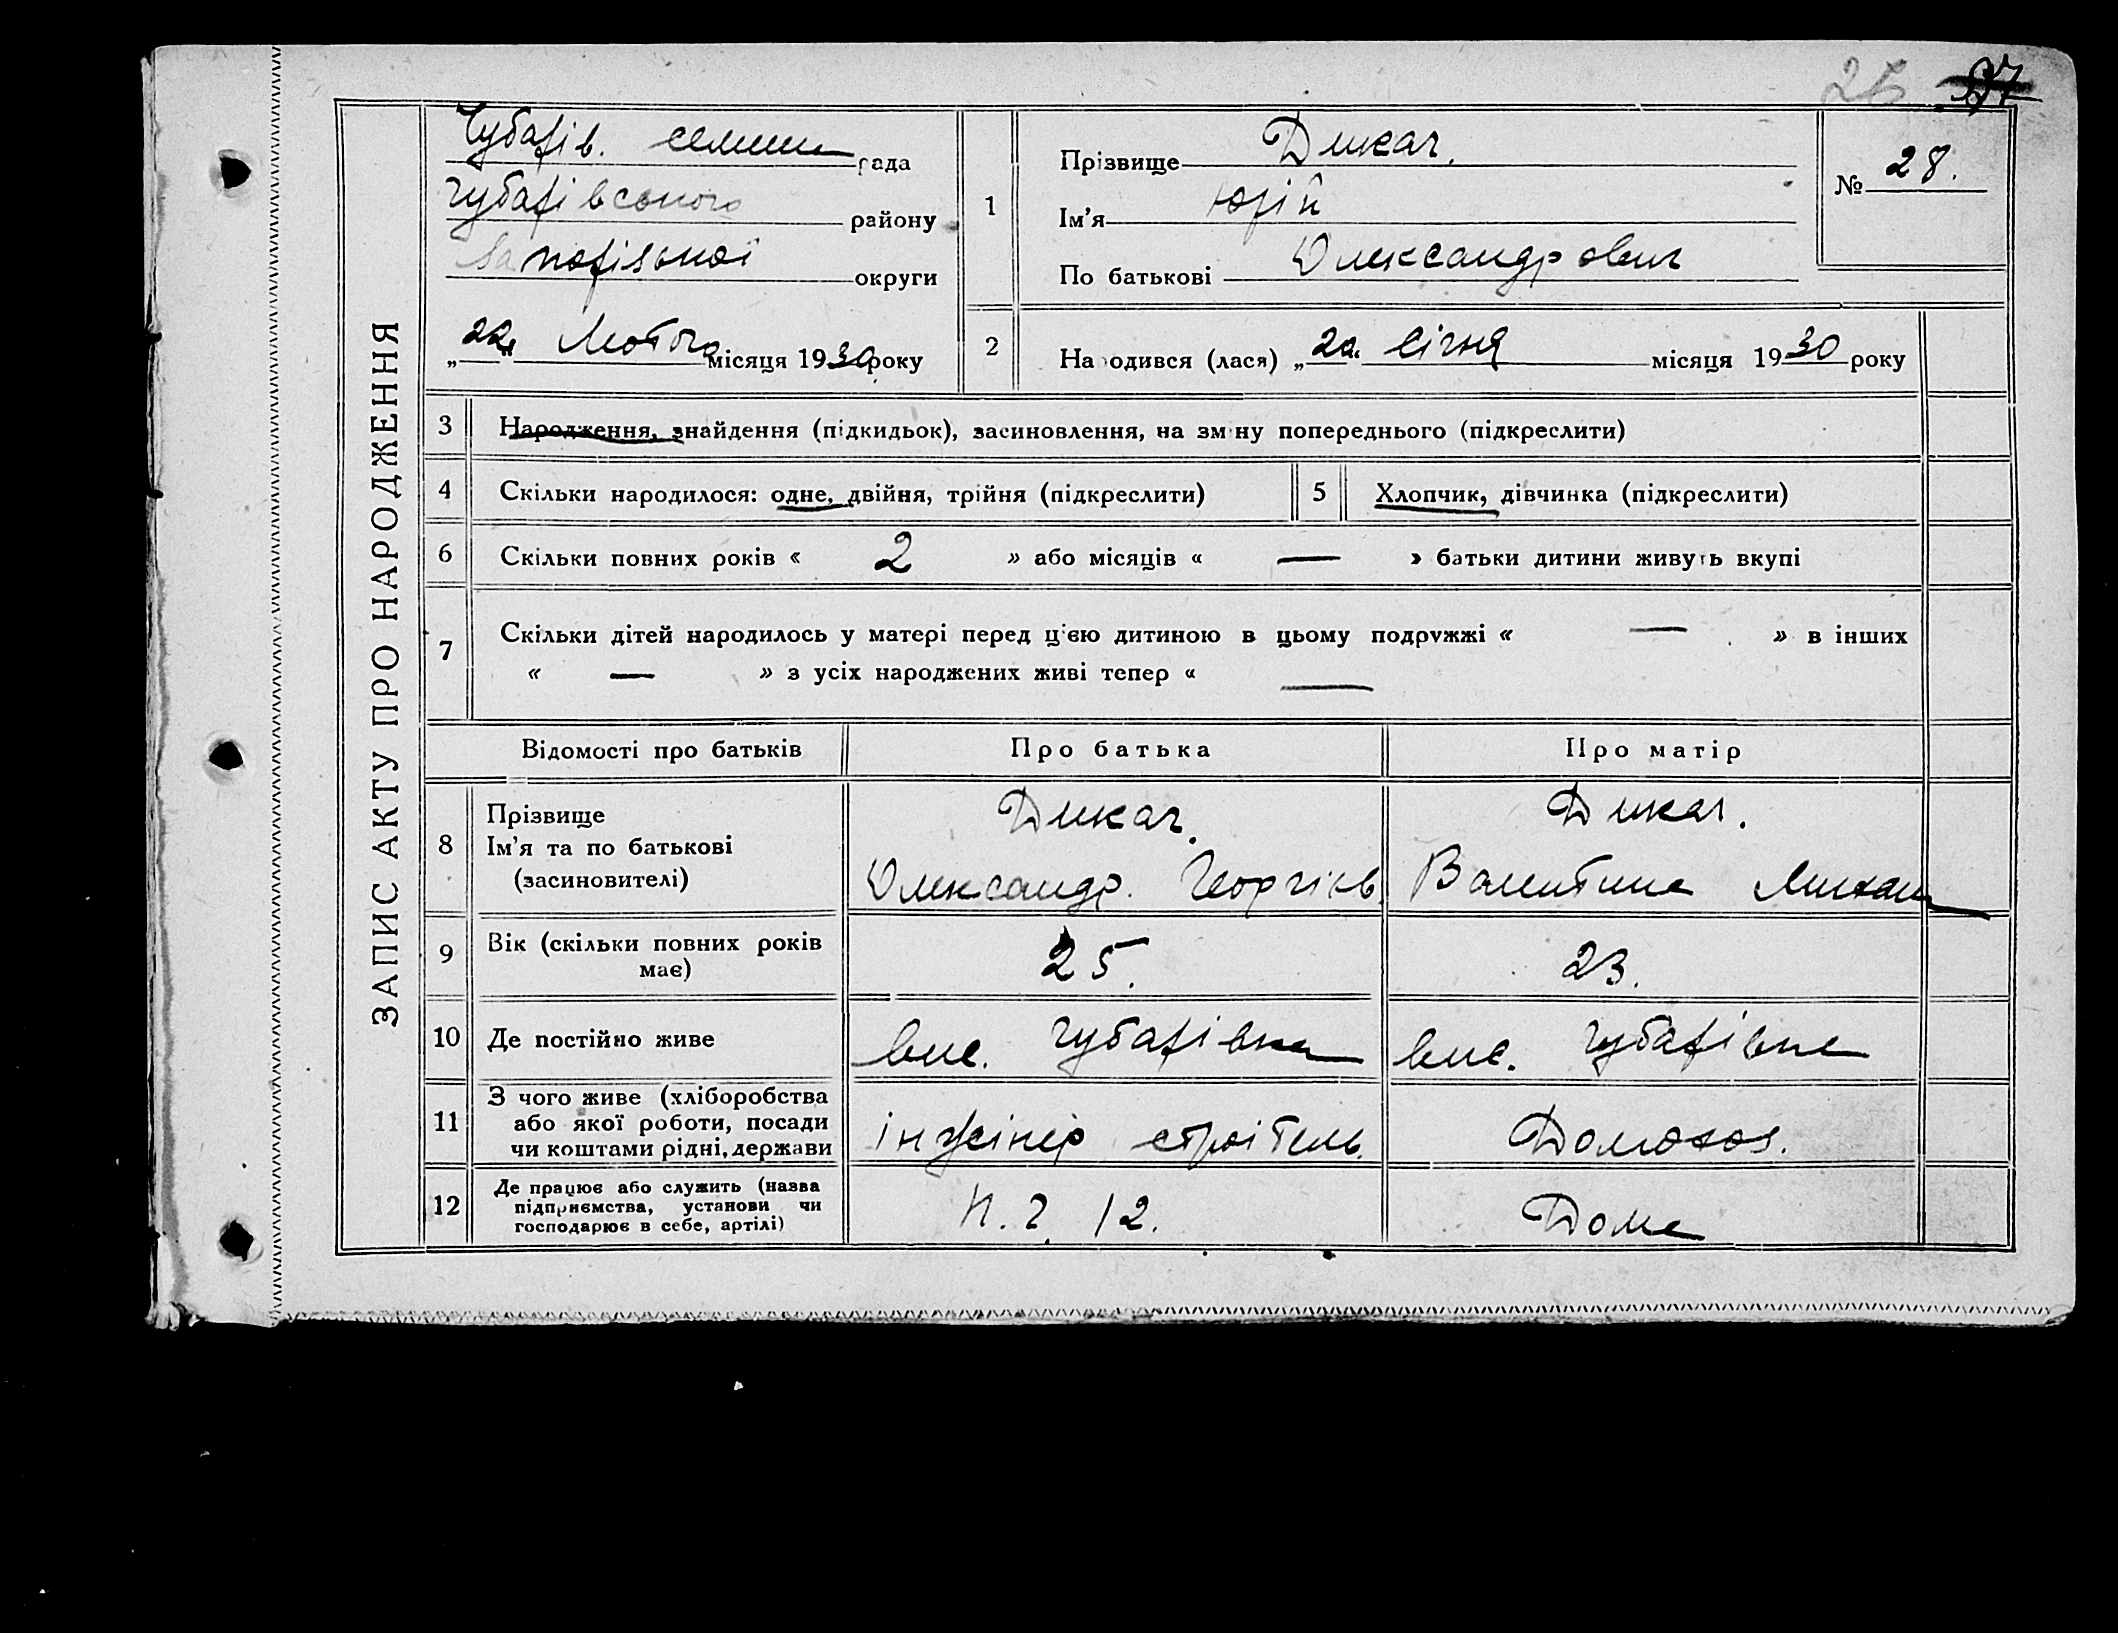 26 27
ЗАПИС АКТУ ПРО НАРОДЖЕННЯ
Чубарів. селищна рада
Чубарівського району
Запорізької округи
„22“ Лютого місяця 1930 року
1
Прізвище Дикач.
Ім’я Юрій
По батькові Олександрович
№ 28.
2 Народився (лася) „22“ Січня місяця 1930 року
3 Народження, знайдення (підкидьок), засиновлення, на зміну попереднього (підкреслити)
4 Скільки народилося: одне, двійня, трійня (підкреслити) 5 Хлопчик, дівчинка (підкреслити)
6 Скільки повних років « 2 » або місяців « — » батьки дитини живуть вкупі
7 Скільки дітей народилось у матері перед цією дитиною в цьому подружжі « — » в інших
« — » з усіх народжених живі тепер « —
Відомості про батьків Про батька Про матір
8 Прізвище Дикач. Дикач.
Ім’я та по батькові Олександр. Георгієв. Валентина Михайл
(засиновителі)
9 Вік (скільки повних років має) 25. 23.
10 Де постійно живе вис. Чубарівка вис. Чубарівка
11 З чого живе (хліборобства
або якої роботи, посади
чи коштами рідні, держави інжінер строітель. Домохоз.
12 Де працює або служить (назва
підприємства, установи чи
господарює в себе, артілі) 12. Дома